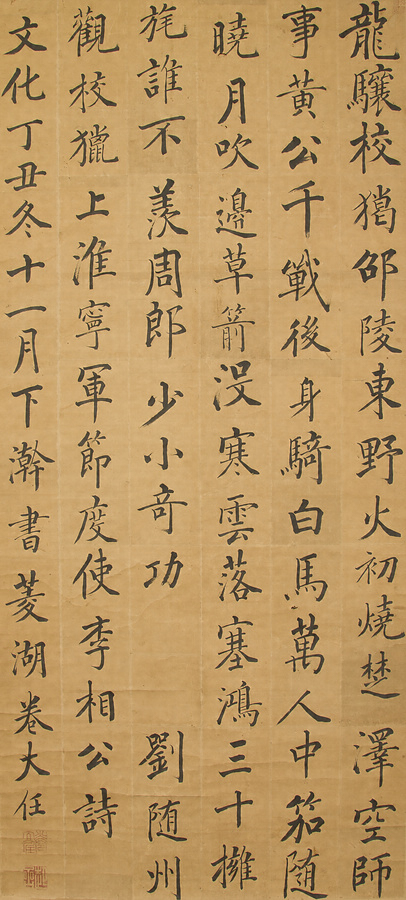 龍驤校猲邵陵東野火初燒楚澤空師
事黃公千戰後身騎白馬萬人中笳随
曉月吹邊草箭没寒雲落塞鴻三十擁
旄誰不羨周郎少小竒功 劉随州
觀校獵上淮寧軍節度使李相公詩
文化丁丑冬十一月下澣書菱湖巻大任